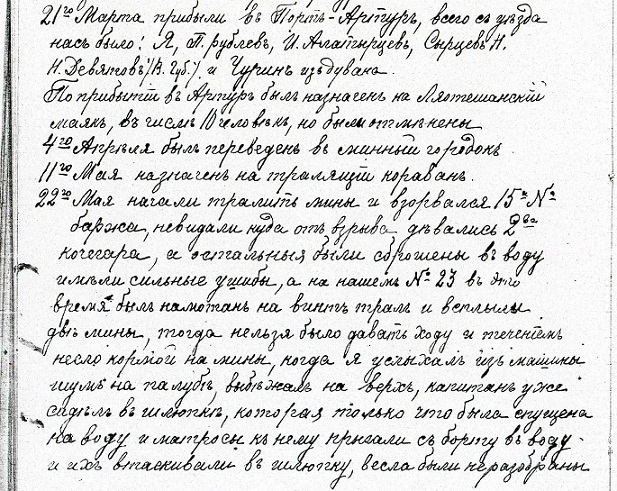 21го Марта прибыли въ Портъ-Артуръ, всего съ уѣзда
насъ было: Я, П. Рублевъ, И. Алатырцевъ, Сырцевъ Н.
Н. Девятовъ (В. Губ.) и Чуринъ
По прибытій въ Артуръ былъ назначенъ на Ляотешанскій
маякъ, въ числѣ 10 человѣкъ, но были отмѣнены
4го Апрѣля былъ переведенъ въ минный городокъ.
11го Мая назначенъ на тралящій караванъ.
22го Мая начали тралить мины и взорвался 15й №
баржа, невидали куда отъ взрыва дѣвались 2ва
кочегара, а остальныя были сброшены въ воду
имѣли сильные ушибы, а на нашемъ № 23 въ это
время былъ намотанъ на винтъ тралъ и всплыли
двѣ мины, тогда нельзя было давать ходу и теченіемъ
несло кормой на мины, когда я услыхалъ изъ машины
шумъ на палубѣ, выбѣжалъ на верхъ, капитанъ уже
сидѣлъ въ шлюпкѣ, которая только что была спущена
на воду и матросы къ нему прыгали съ борту въ воду
и ихъ втаскивали въ шлюпку, весла были неразобраны